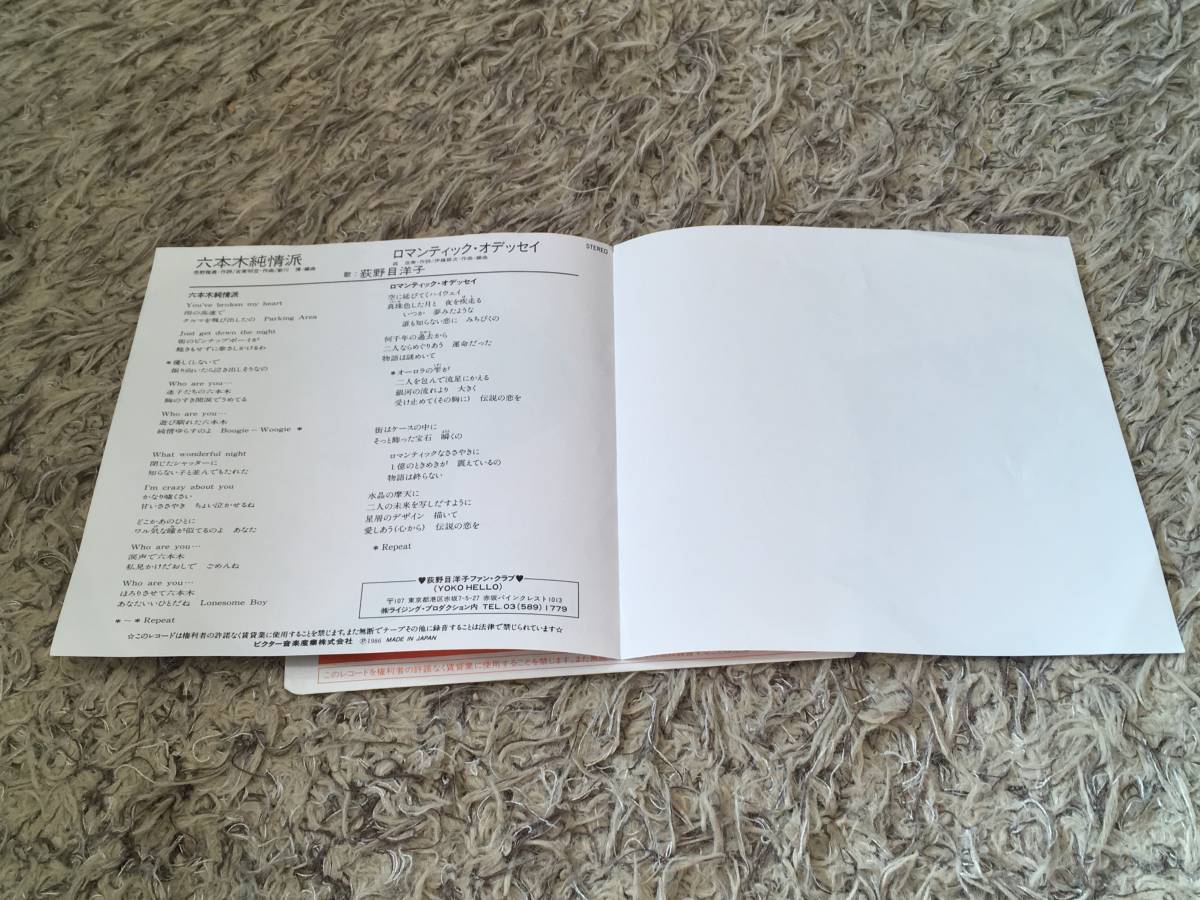 六本木純情派
売野雅勇・作詞/吉実明宏・作曲/新川 博・編曲
ロマンティック・オデッセイ
歌:荻野目洋子
STEREO
六本木純情派
You've broken my heart
雨の高速で
クルマを飛び出したの Parking Area
Just get down the night
街のピンナップボーイが
飽きもせずに傘さしかけるわ
*優しくしないで
振り向いたら泣き出しそうなの
Who are you…
迷子たちの六本木
胸のすき間涙でうめてる
Who are you…
遊び馴れた六本木
純情ゆらすのよ Boogie-Woogie *
What wonderful night
閉じたシャッターに
知らない子と並んでもたれた
I'm crazy about you
かなり嘘くさい
甘いささやき ちょい泣かせるね
どこかあのひとに
ワル気な瞳が似てるのよ あなた
Who are you…
涙声で六本木
私見かけだおしで ごめんね
Who are you…
ほろりさせて六本木
あなたいいひとだね Lonesome Boy
*-* Repeat
ロマンティック・オデッセイ
空に延びてくハイウェイ
真珠色した月と 夜を疾走る
いつか 夢みたような
誰も知らない恋に みちびくの
何千年の過去から
二人ならめぐりあう 運命だった
物語は謎めいて
*オーロラの雫が
二人を包んで流星にかえる
銀河の流れより 大きく
受け止めて(その胸に) 伝説の恋を
街はケースの中に
そっと飾った宝石 瞬くの
ロマンティックなささやきに
1億のときめきが 震えているの
物語は終らない
水晶の摩天に
二人の未来を写しだすように
星屑のデザイン 描いて
愛しあう(心から) 伝説の恋を
* Repeat
♥荻野目洋子ファン・クラブ♥
(YOKO HELLO)
〒107 東京都港区赤坂7-5-27 赤坂パインクレスト1013
㈱ライジング・プロダクション内 TEL.03(589)1779
☆このレコードは権利者の許諾なく賃貸業に使用することを禁じます。また無断でテープその他に録音することは法律で禁じられています☆
ビクター音楽産業株式会社 ℗1986 MADE IN JAPAN
このレコードを権利者の許諾なく賃貸業に使用することを禁じます。また無